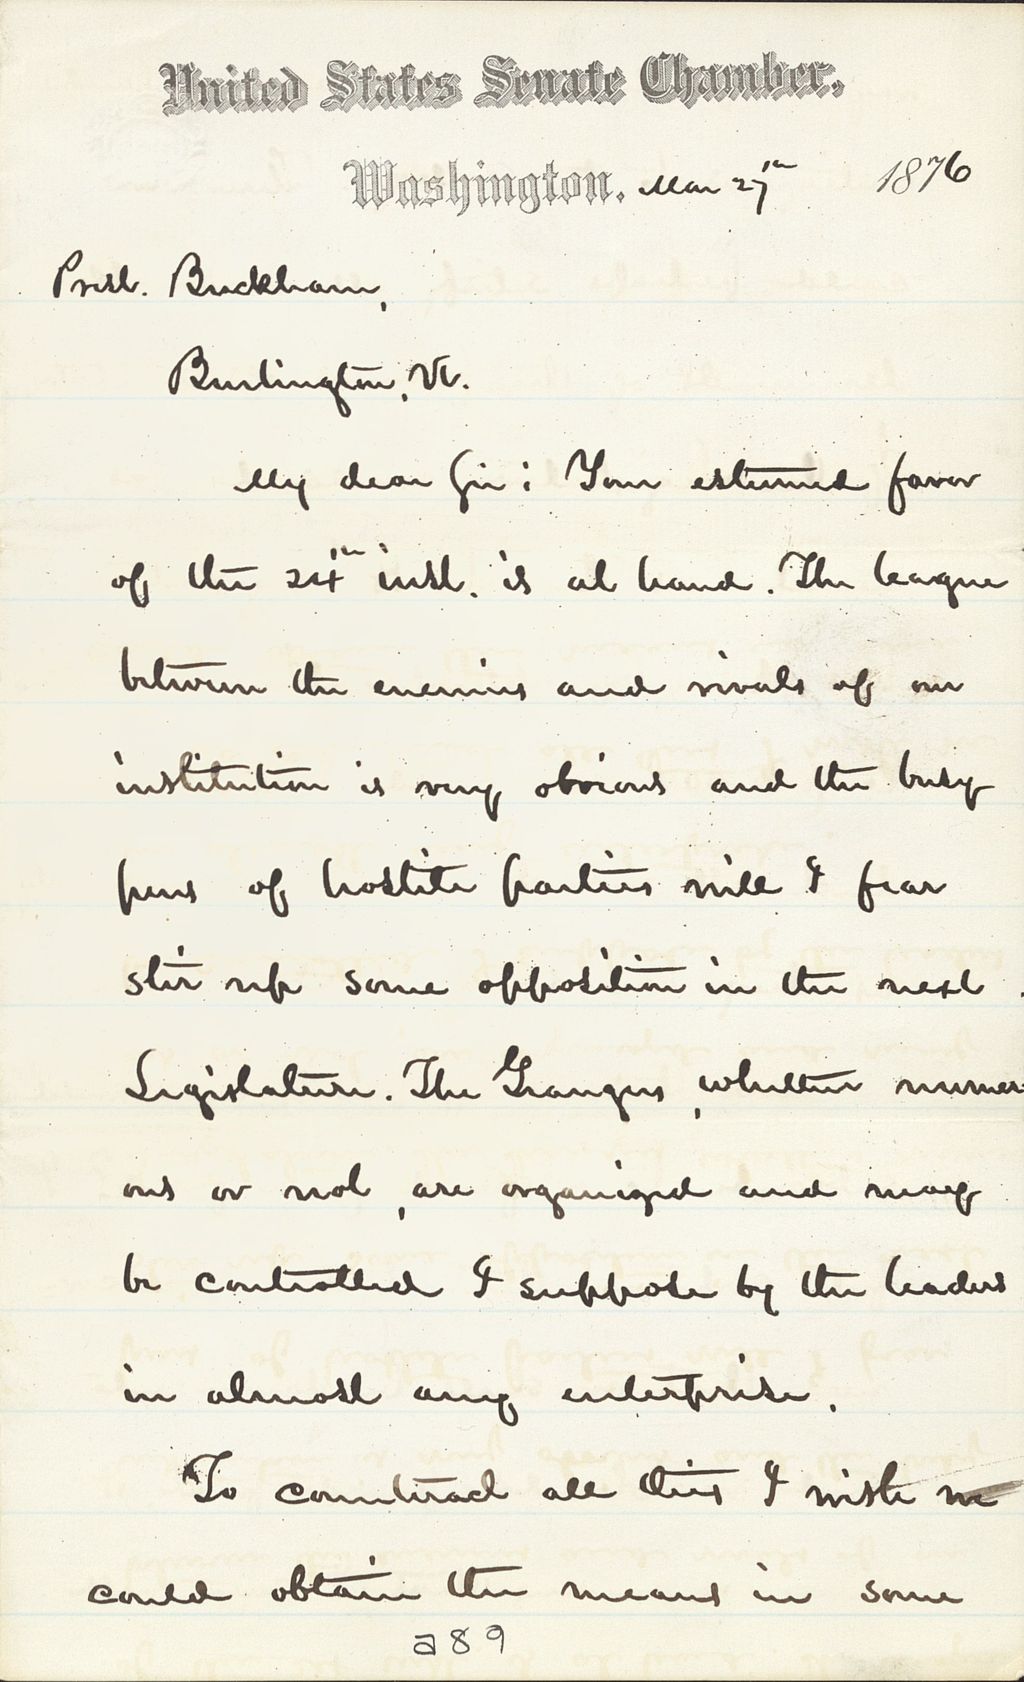 United States Senate Chamber.
Washington. Mar 27th 1876
Prest. Buckham,
Burlington, Vt.
My dear Sir: Your esteemed favor
of the 24th inst. is at hand. The league
between the enemies and rivals of our
institution is very obvious and the busy
pens of hostile parties will I fear
stir up some opposition in the next
Legislature. The Granges, whether numer-
ous or not, are organized and may
be controlled I suppose by the leaders
in almost any enterprise.
To counteract all this I wish we
could obtain the means in some
a89